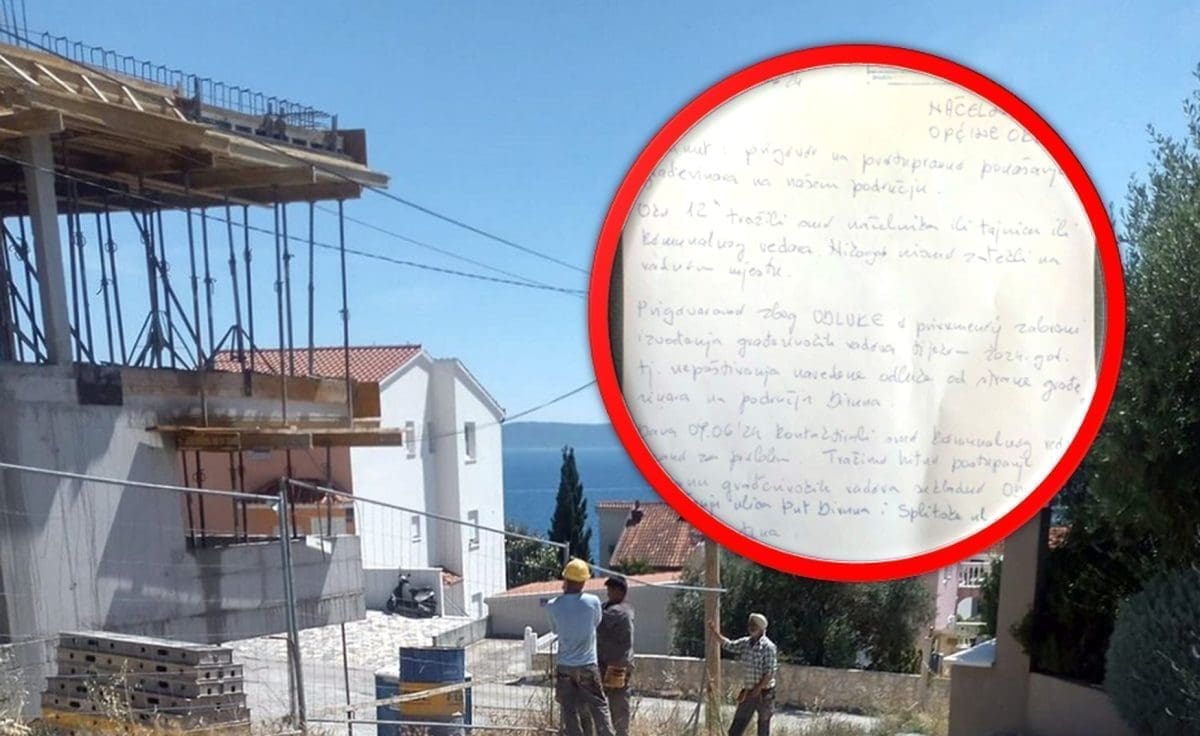 NAČEL
OPĆINE O
prigovor na protupravno ponašanje
građevinara na našem području.
Oko 12h tražili smo načelnika ili tajnicu ili
komunalnog redara. Nikoga nismo zatekli na
radnom mjestu.
Prigovaramo zbog ODLUKE o privremenoj zabrani
izvođenja građevinskih radova tijekom 2024. god.
tj. nepoštivanja navedene odluke od strane građe
vinara na području Bruna.
Dana 07.06'24 kontaktirali smo komunalnog red
za problem. Tražimo hitno postupanje
građevinskih radova sukladno O
ulica put Bruna i Splitske ul